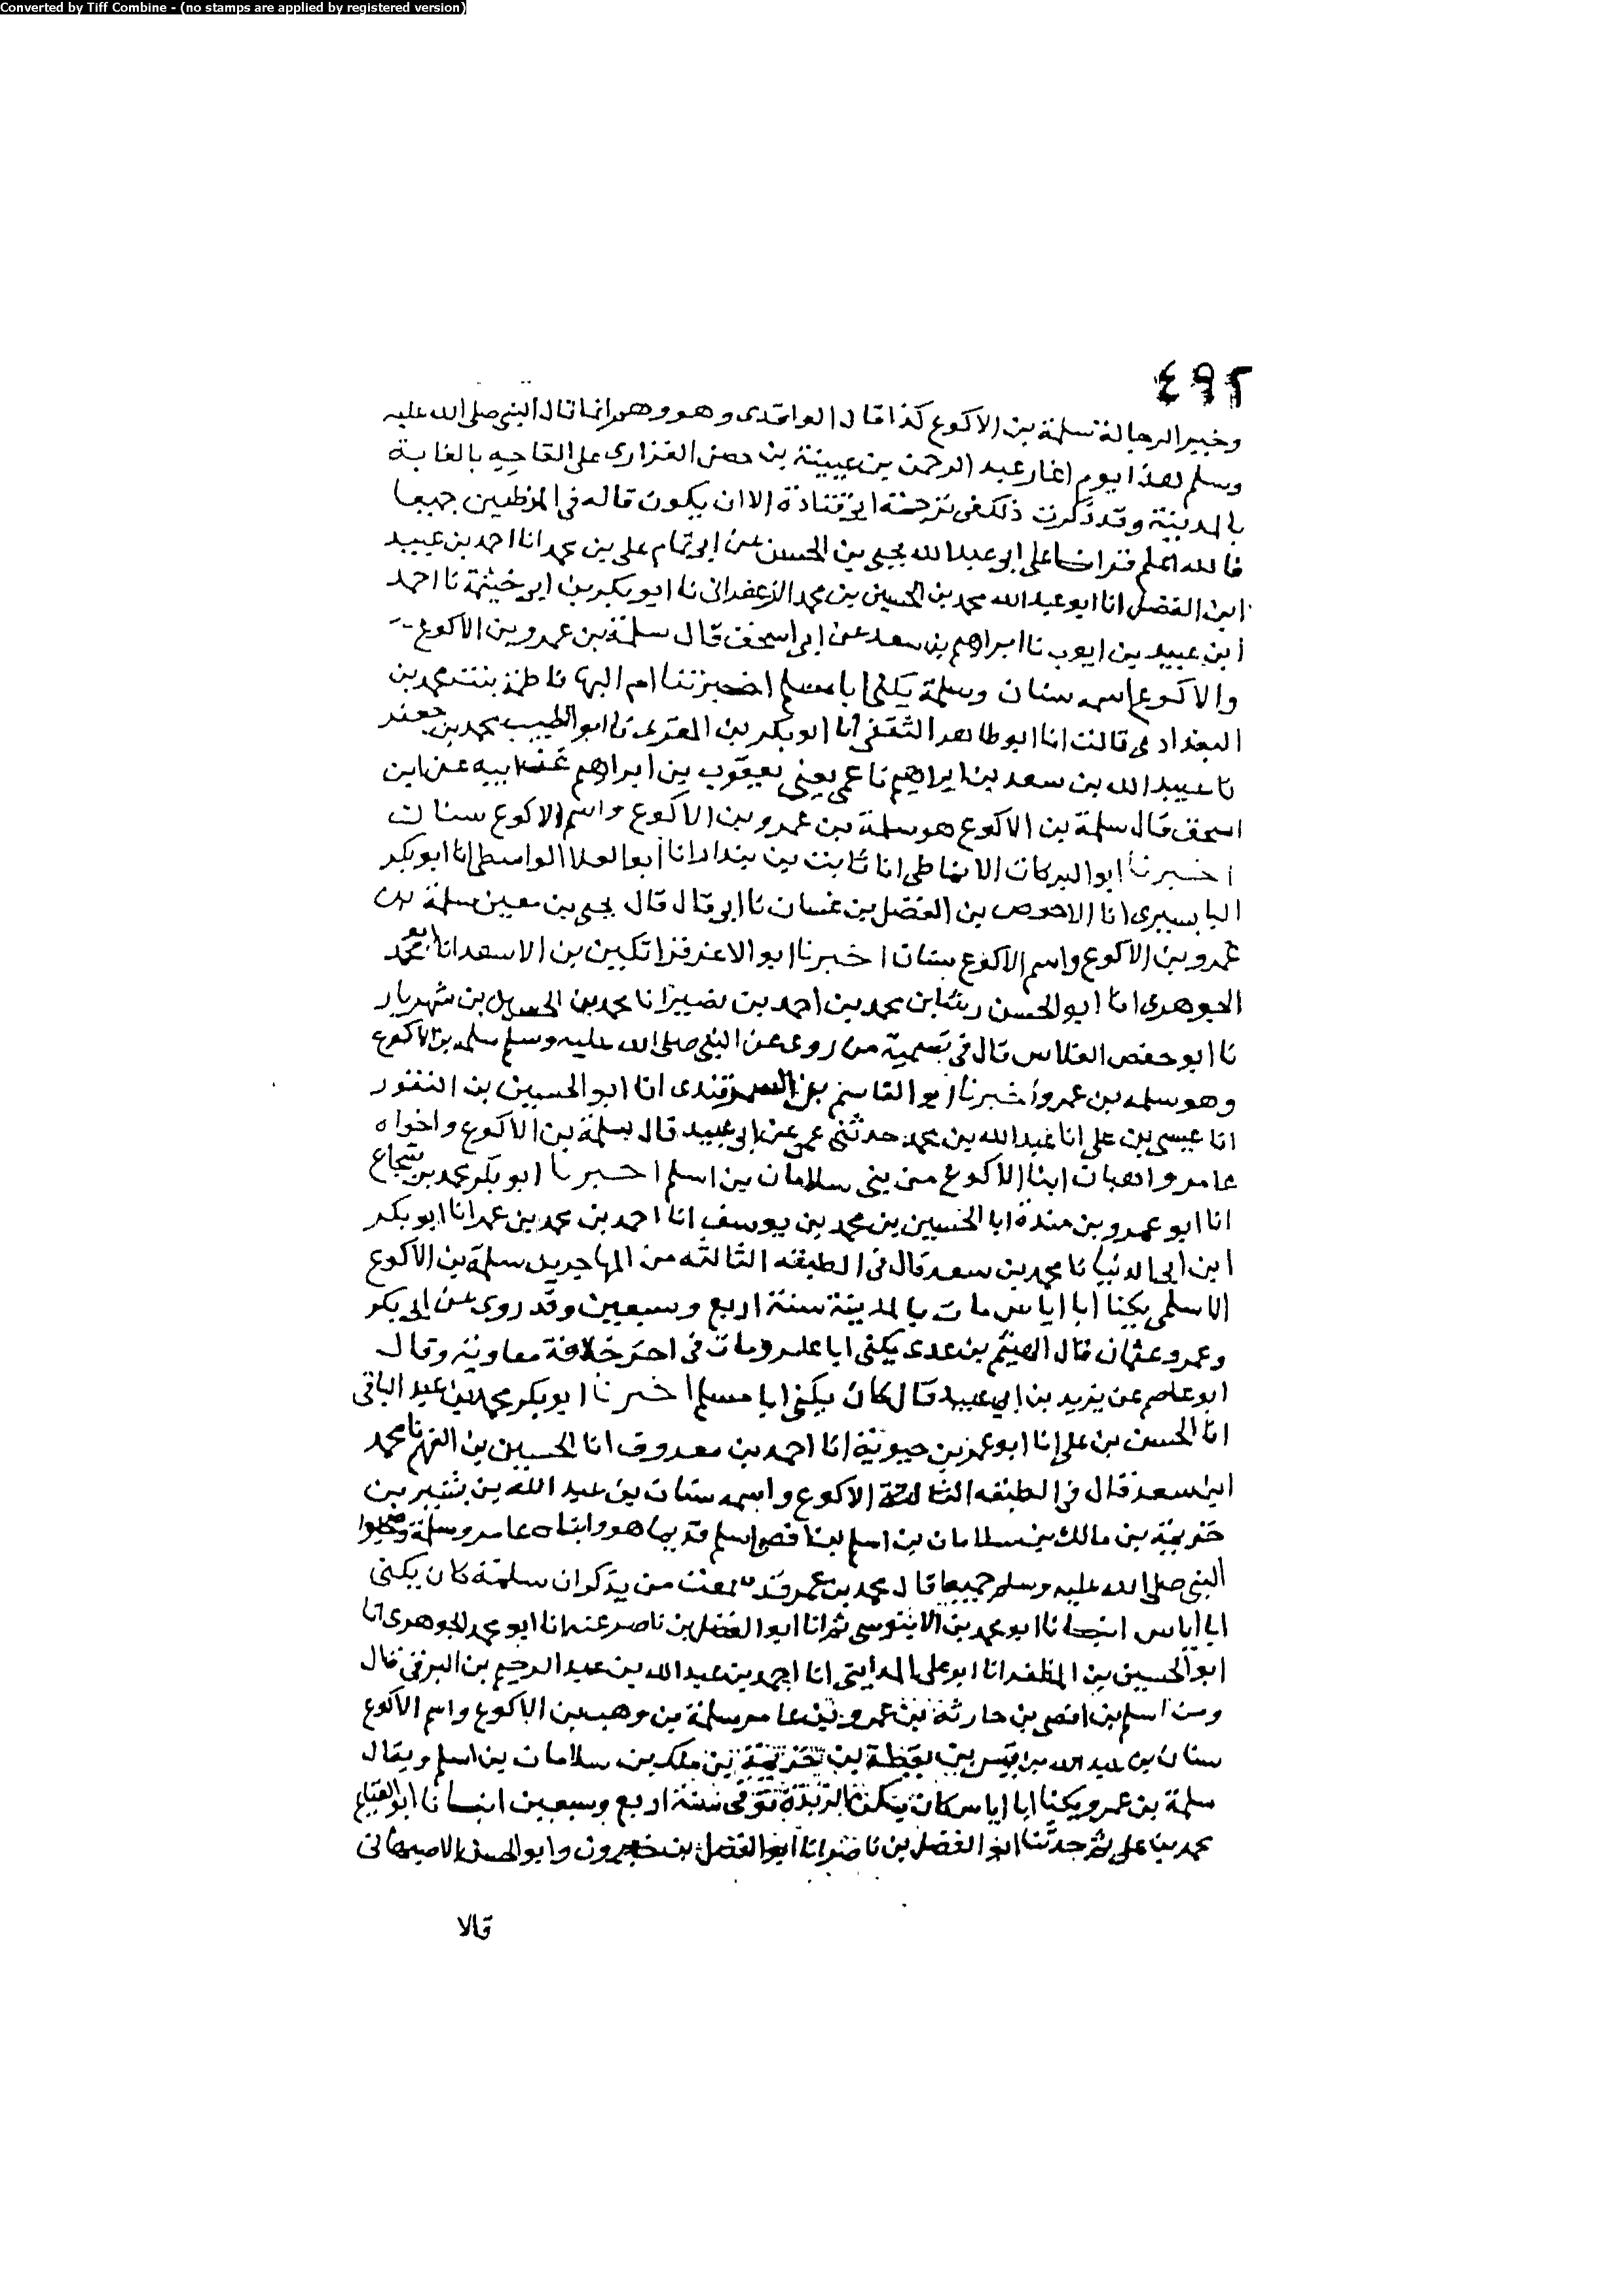 Converted by Tiff Combine - (no stamps are applied by registered version)
٤٩٢
وخير الرجالة سلمة بن الاكوع كذا قال الواقدى وهو وهم انما قال النبى صلى الله عليه
وسلم هذا يوم اغار عبد الرحمن بن عيينة بن حصن الفزارى على لقاحه بالغابة
بالمدينة وقد ذكرت ذلك فى ترجمة ابى قتادة الا ان يكون قاله فى الموطنين جميعا
فالله اعلم قرات على ابى عبد الله يحيى بن الحسن عن ابى تمام على بن محمد انا احمد بن عبيد
ابن الفضل انا ابو عبد الله محمد بن الحسين بن محمد الزعفرانى نا ابو بكر بن ابى خيثمة نا احمد
ابن عبيد بن ايوب نا ابراهيم بن سعد عن ابى اسحق قال سلمة بن عمرو بن الاكوع
والاكوع اسمه سنان وسلمة يكنى ابا مسلم اخبرتنا ام البها فاطمة بنت محمد بن
البغدادى قالت انا ابو طاهر الثقفى انا ابو بكر بن المقرى نا ابو الطيب محمد بن جعفر
نا عبيد الله بن سعد بن ابراهيم نا عمى يعنى يعقوب بن ابراهيم عن ابيه عن ابن
اسحق قال سلمة بن الاكوع هو سلمة بن عمرو بن الاكوع واسم الاكوع سنان
اخبرنا ابو البركات الانماطى انا ثابت بن بندار انا ابو العلا الواسطى انا ابو بكر
البابسيرى انا الاحوص بن الفضل بن غسان نا ابى قال قال يحيى بن معين سلمة بن
عمرو بن الاكوع واسم الاكوع سنان اخبرنا ابو الاعز قراتكين بن الاسعد انا ابو محمد
الجوهرى انا ابو الحسن بن محمد بن احمد بن نصير انا محمد بن الحسين بن شهريار
نا ابو حفص الفلاس قال فى تسمية من روى عن النبى صلى الله عليه وسلم سلمه بن الاكوع
وهو سلمه بن عمرو اخبرنا ابو القاسم بن السمرقندى انا ابو الحسين بن النقور
انا عيسى بن على انا عبد الله بن محمد حدثنى عمى عن ابى عبيد قال سلمة بن الاكوع واخواه
عامر واهبان ابنا الاكوع من بنى سلامان بن اسلم اخبرنا ابو بكر محمد بن شجاع
انا ابو عمرو بن مندة ابا الحسين بن محمد بن يوسف انا احمد بن محمد بن عمر انا ابو بكر
ابن ابى الدنيا نا محمد بن سعد قال فى الطبقه الثالثه من المهاجرين سلمة بن الاكوع
الاسلمى يكنا ابا اياس مات بالمدينة سنة اربع وسبعين وقد روى عن ابى بكر
وعمر وعثمان قال الهيثم بن عدى يكنى ابا عامر ومات فى اخر خلافة معاوية وقال
ابو عاصم عن يزيد بن ابى عبيد قال كان يكنى ابا مسلم اخبرنا ابو بكر محمد بن عبد الباقى
انا الحسن بن على انا ابو عمر بن حيوية انا احمد بن معروف انا الحسين بن الفهم نا محمد
ابن سعد قال فى الطبقه الثالثة الاكوع واسمه سنان بن عبد الله بن قشير بن
خزيمة بن مالك بن سلامان بن اسلم بن افصى اسلم قديما هو وابناه عامر وسلمة وصحبوا
النبى صلى الله عليه وسلم جميعا قال محمد بن عمر وقد سمعت من يذكر ان سلمة كان يكنى
ابا اياس انبانا ابو محمد بن الابنوسى ثم انا ابو الفضل بن ناصر عنه انا ابو محمد الجوهرى انا
ابو الحسين بن المظفر انا ابو على المداينى انا احمد بن عبد الله بن عبد الرحيم بن البرقى قال
ومن اسلم بن افصى بن حارثة بن عمرو بن عامر سلمة بن وهب بن الاكوع واسم الاكوع
سنان بن عبد الله بن قيس بن يقظة بن خزيمة بن ملك بن سلامان بن اسلم ويقال
سلمة بن عمرو يكنا ابا اياس كان يسكن الربذة توفى سنة اربع وسبعين انبانا ابو الغنايم
محمد بن على ثم حدثنا ابو الفضل بن ناصر انا ابو الفضل بن خيرون وابو الحسن الاصبهانى
قالا